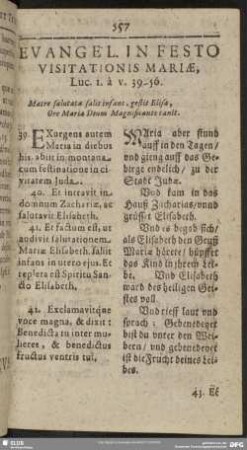 357
EVANGEL. IN FESTO
VISITATIONIS MARIÆ,
Luc. 1. à v. 39-56.
Matre salutatâ salit infans, gestit Elisa,
Ore Maria Deum Magnificante canit.
39. EXurgens autem
Maria in diebus
his abiit in montana
cum festinatione in ci
vitatem Juda.
40. Et intravit in
domum Zachariæ, ac
salutavit Elisabeth.
41. Et factum est, ut
audivit salutationem
Mariæ Elisabeth, saliit
infans in utero ejus. Et
repleta est Spiritu San-
cto Elisabeth.
42. Exclamavitque
voce magna, & dixit:
Benedicta tu inter mu-
lieres, & benedictus
fructus ventris tui.
MAria aber stund
auff in den Tagen/
und gieng auff das Ge-
birge endelich/ zu der
Stadt Judæ.
Und kam in das
Hauß Zacharias/ und
grüsset Elisabeth.
Und es begab sich/
als Elisabeth den Gruß
Mariæ hörete/ hüpffet
das Kind in ihrem Lei-
be. Und Elisabeth
ward des heiligen Gei-
stes voll.
Und rieff laut und
sprach: Gebenedeyet
bist du unter den Wei-
bern/ und gebenedeyet
ist die Frucht deines Lei-
bes.
43. Et
SLUB
DFG